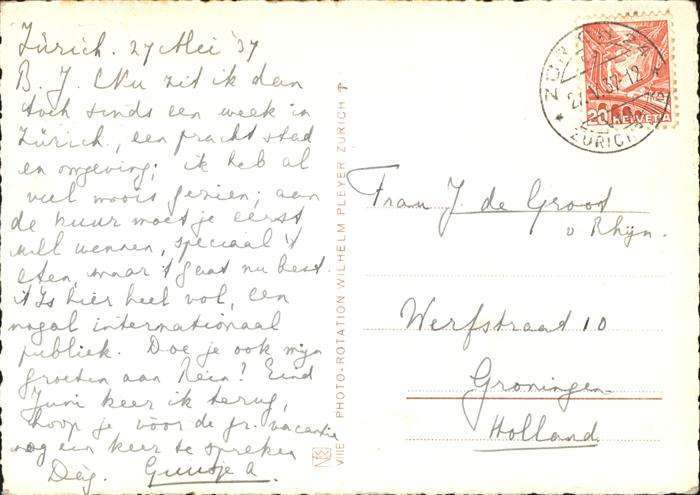 Zürich. 27 Mei '37
B. J. Nu zit ik dan
toch sinds een week in
Zürich, een pracht stad
en omgeving; ik heb al
veel moois gezien; aan
de kuur moet je eerst
wennen, speciaal 't
eten, maar 't gaat nu best.
't Is hier heel vol, een
nogal internationaal
publiek. Doe je ook mijn
groeten aan Rein? Eind
Juni keer ik terug,
hoop je vóór de gr. vacantie
nog een keer te spreken
Dag.
VIIE PHOTO-ROTATION WILHELM PLEYER ZURICH
20 HELVETIA
ZÜRICH
Frau J. de Groot
v Rhijn.
Werfstraat 10
Groningen
Holland